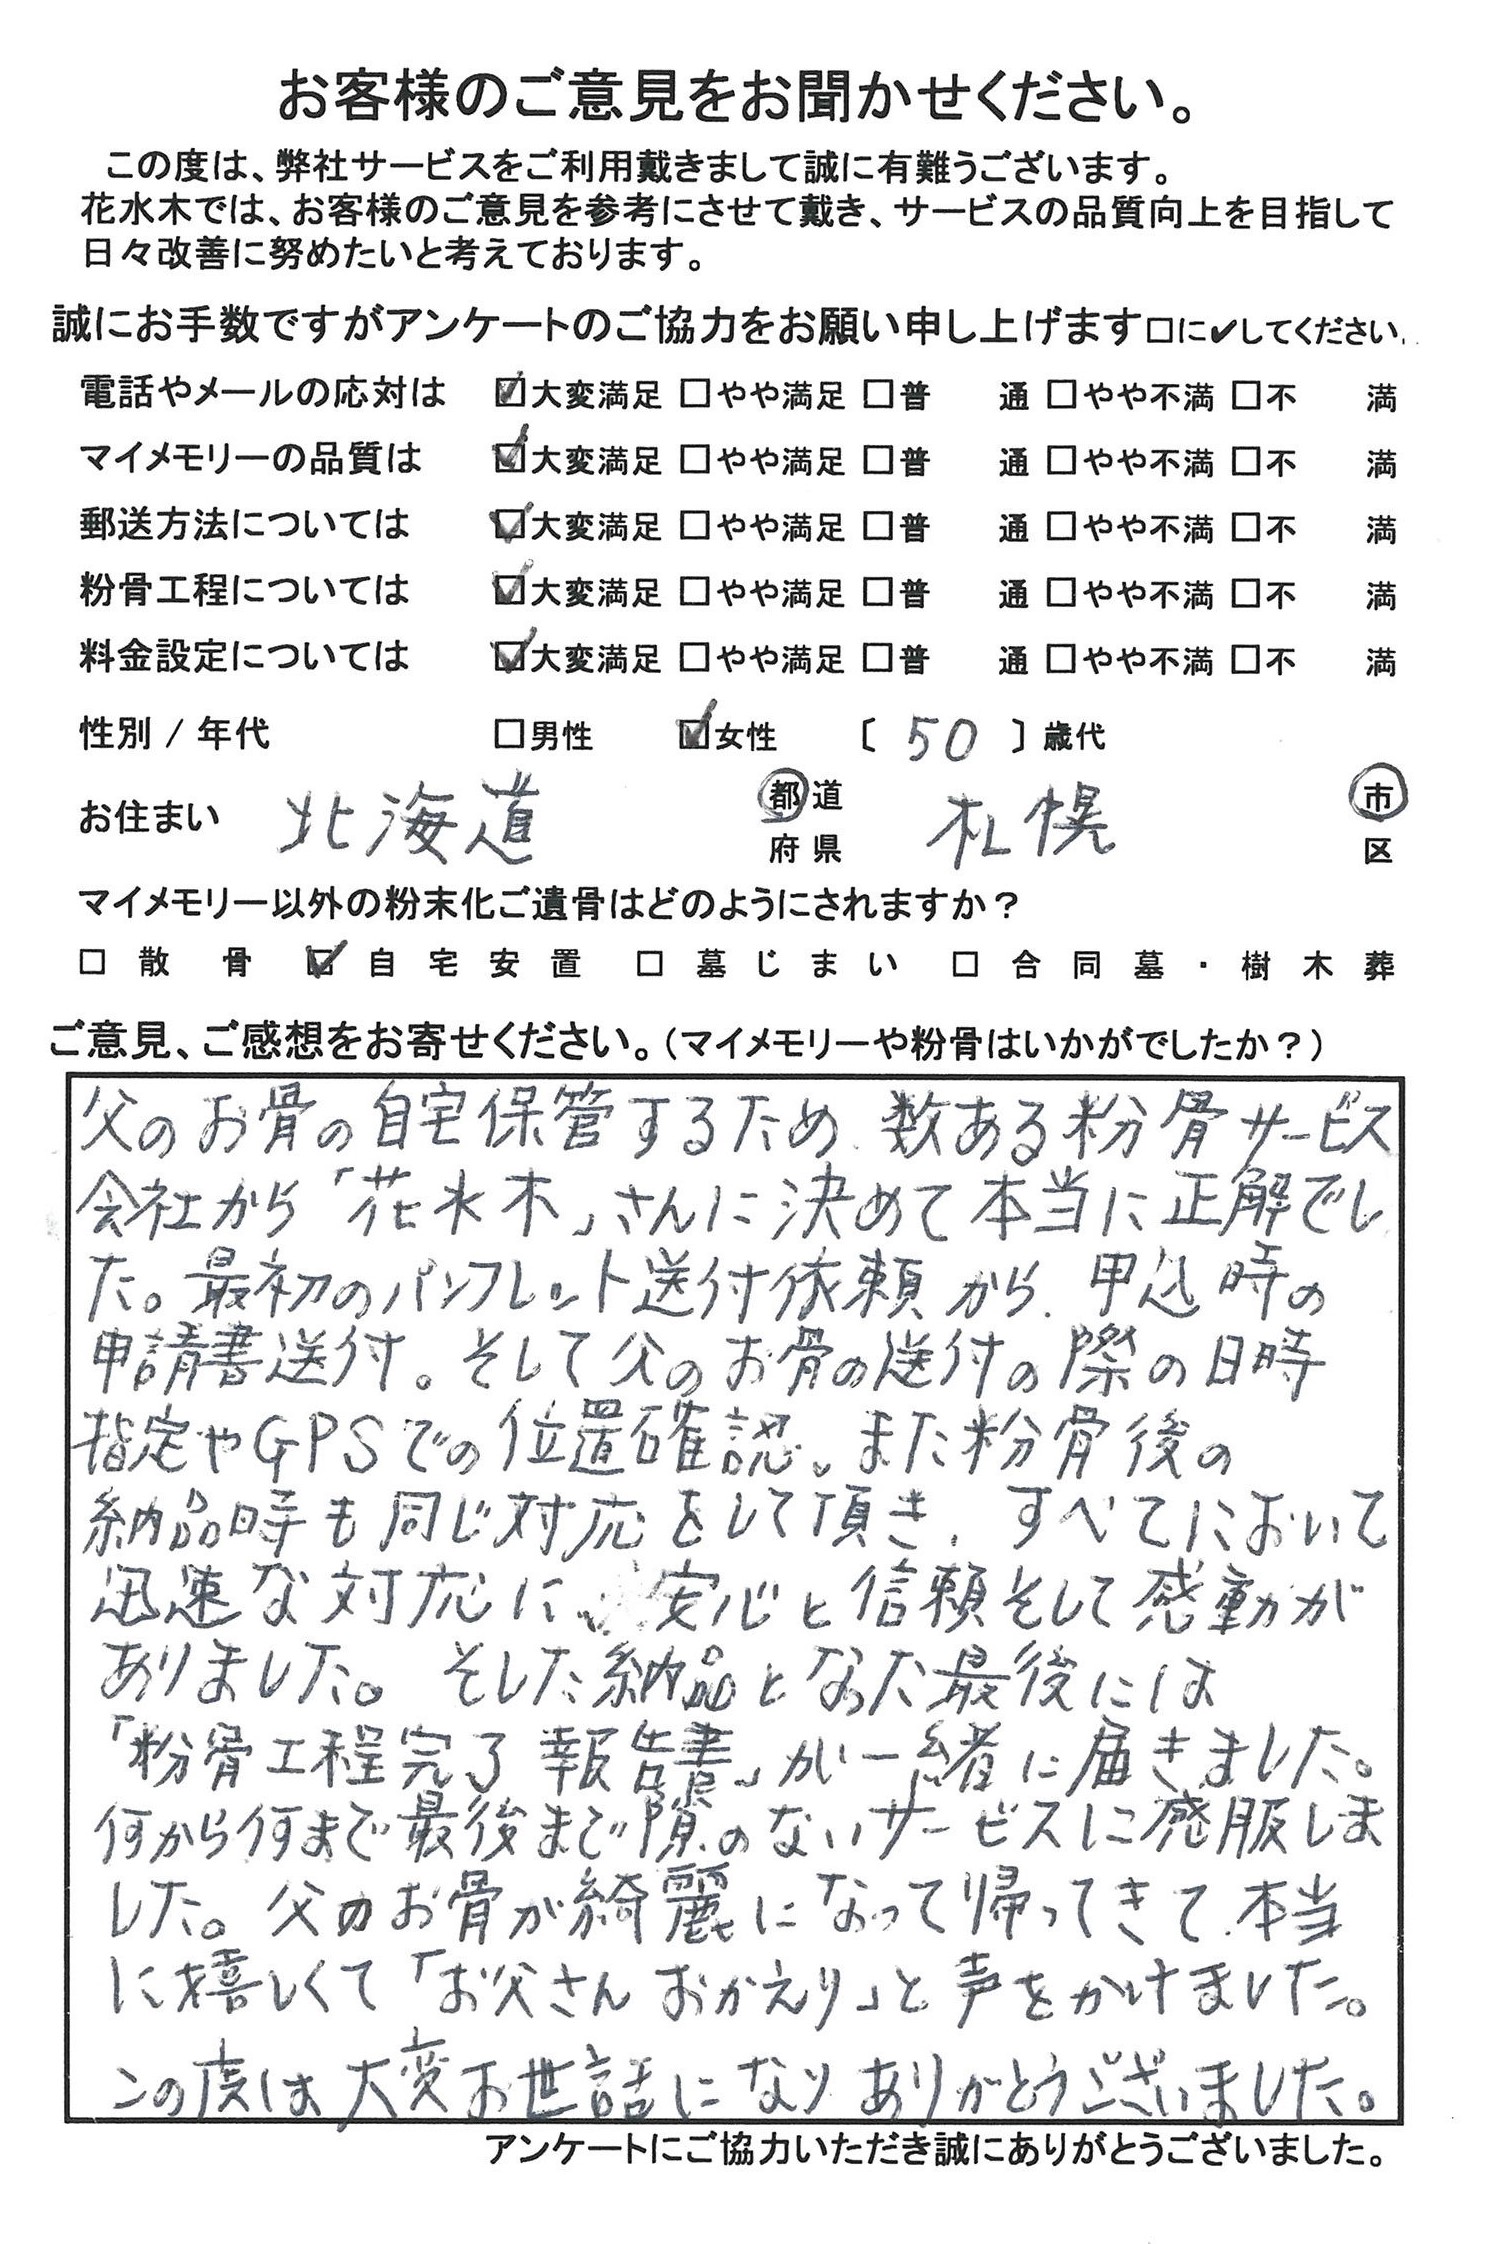 お客様のご意見をお聞かせください。
この度は、弊社サービスをご利用戴きまして誠に有難うございます。
花水木では、お客様のご意見を参考にさせて戴き、サービスの品質向上を目指して
日々改善に努めたいと考えております。
誠にお手数ですがアンケートのご協力をお願い申し上げます□に✓してください.
電話やメールの応対は ☑大変満足 □やや満足 □普 通 □やや不満 □不 満
マイメモリーの品質は ☑大変満足 □やや満足 □普 通 □やや不満 □不 満
郵送方法については ☑大変満足 □やや満足 □普 通 □やや不満 □不 満
粉骨工程については ☑大変満足 □やや満足 □普 通 □やや不満 □不 満
料金設定については ☑大変満足 □やや満足 □普 通 □やや不満 □不 満
性別 / 年代 □男性 ☑女性 〔 50 〕歳代
お住まい 北海道 都道府県 札幌 市区
マイメモリー以外の粉末化ご遺骨はどのようにされますか？
□ 散骨 ☑ 自宅安置 □ 墓じまい □ 合同墓・樹木葬
ご意見、ご感想をお寄せください。（マイメモリーや粉骨はいかがでしたか？）
父のお骨の自宅保管するため、数ある粉骨サービス
会社から「花水木」さんに決めて本当に正解でし
た。最初のパンフレット送付依頼から、申込時の
申請書送付。そして父のお骨の送付の際の日時
指定やGPSでの位置確認。また粉骨後の
納品時も同じ対応をして頂き、すべてにおいて
迅速な対応に、安心と信頼そして感動が
ありました。そした納品となった最後には
「粉骨工程完了報告書」が一緒に届きました。
何から何まで最後まで隙のないサービスに感服しま
した。父のお骨が綺麗になって帰ってきて、本当
に嬉しくて「お父さんおかえり」と声をかけました。
この度は大変お世話になりありがとうございました。
アンケートにご協力いただき誠にありがとうございました。